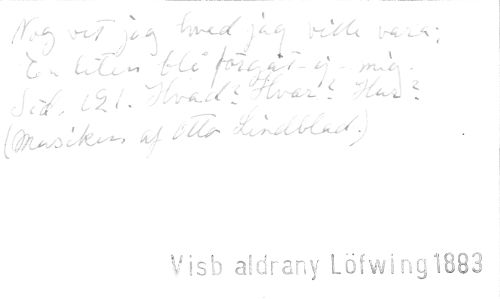 Nog vet jag hvad jag ville vara;
En liten blå förgät-ej-mig.
Sid. 121. Hvad? Hvar? Hur?
(Musiken af Otto Lindblad.)
Visb aldrany Löfwing 1883